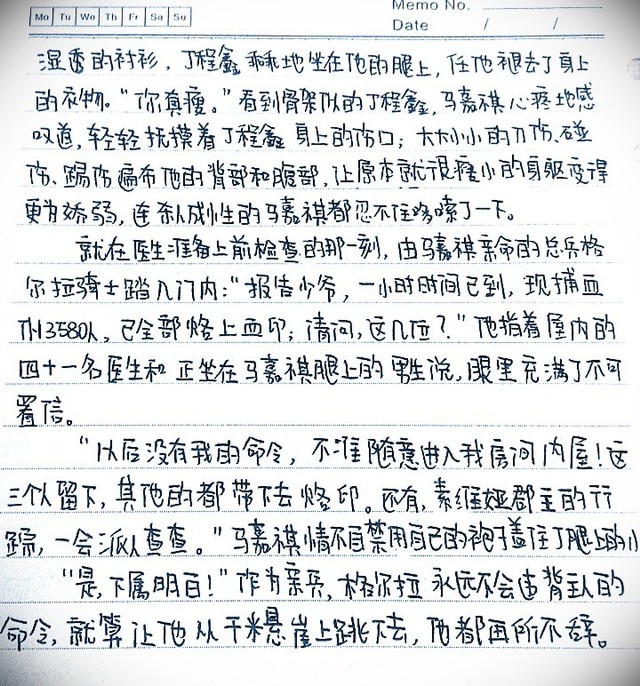 Mo Tu We Th Fr Sa Su
Memo No.
Date / /
湿透的衬衫，丁程鑫乖乖地坐在他的腿上，任他褪去了身上
的衣物。“你真瘦。”看到骨架似的丁程鑫，马嘉祺心疼地感
叹道，轻轻抚摸着丁程鑫身上的伤口；大大小小的刀伤、碰
伤、踢伤遍布他的背部和腹部，让原本就很瘦小的身躯变得
更为娇弱，连杀人成性的马嘉祺都忍不住哆嗦了一下。
就在医生准备上前检查的那一刻，由马嘉祺亲命的总兵格
尔拉骑士踏入门内：“报告少爷，一小时时间已到，现捕血
仆13580人，已全部烙上血印；请问，这几位？”他指着屋内的
四十一名医生和正坐在马嘉祺腿上的男生说，眼里充满了不可
置信。
“以后没有我的命令，不准随意进入我房间内屋！这
三个人留下，其他的都带下去烙印。还有，素维娅郡主的行
踪，一会派人查查。”马嘉祺情不自禁用自己的袍子盖住了腿上的小
“是，下属明白！”作为亲兵，格尔拉永远不会违背主人的
命令，就算让他从千米悬崖上跳下去，他都再所不辞。